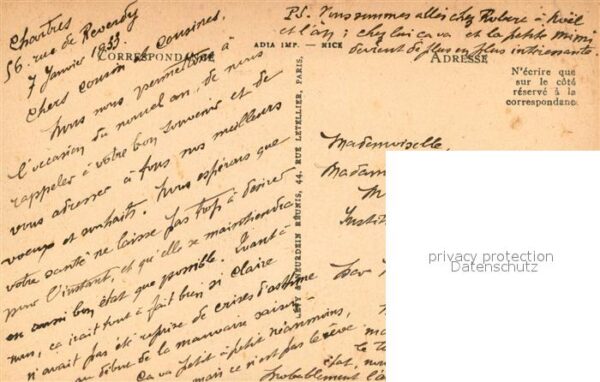 Chartres
56, rue de Reverdy
7 Janvier 1933.
Chers cousin et cousines,
Nous nous permettons à
l'occasion du nouvel an, de nous
rappeler à votre bon souvenir et de
vous adresser à tous nos meilleurs
voeux et souhaits. Nous espérons que
votre santé ne laisse pas trop à désirer
pour l'instant et qu'elle se maintiendra
en aussi bon état que possible. Quant à
nous, ça irait tout à fait bien si Claire
n'avait pas été reprise de crises d'asthme
au début de la mauvaise saison
Ça va petit à petit néanmoins,
mais ce n'est pas le rêve
Probablement
PS. Nous sommes allés chez Robert à Noël
et l'an ; chez lui ça va et la petite Mimi
devient de plus en plus intéressante.
CORRESPONDANCE
ADIA IMP. — NICE
ADRESSE
N'écrire que
sur le côté
réservé à la
correspondance
LÉVY & NEURDEIN RÉUNIS, 44, RUE LETELLIER, PARIS,
Mademoiselle,
Madam
M
Instit
privacy protection
Datenschutz